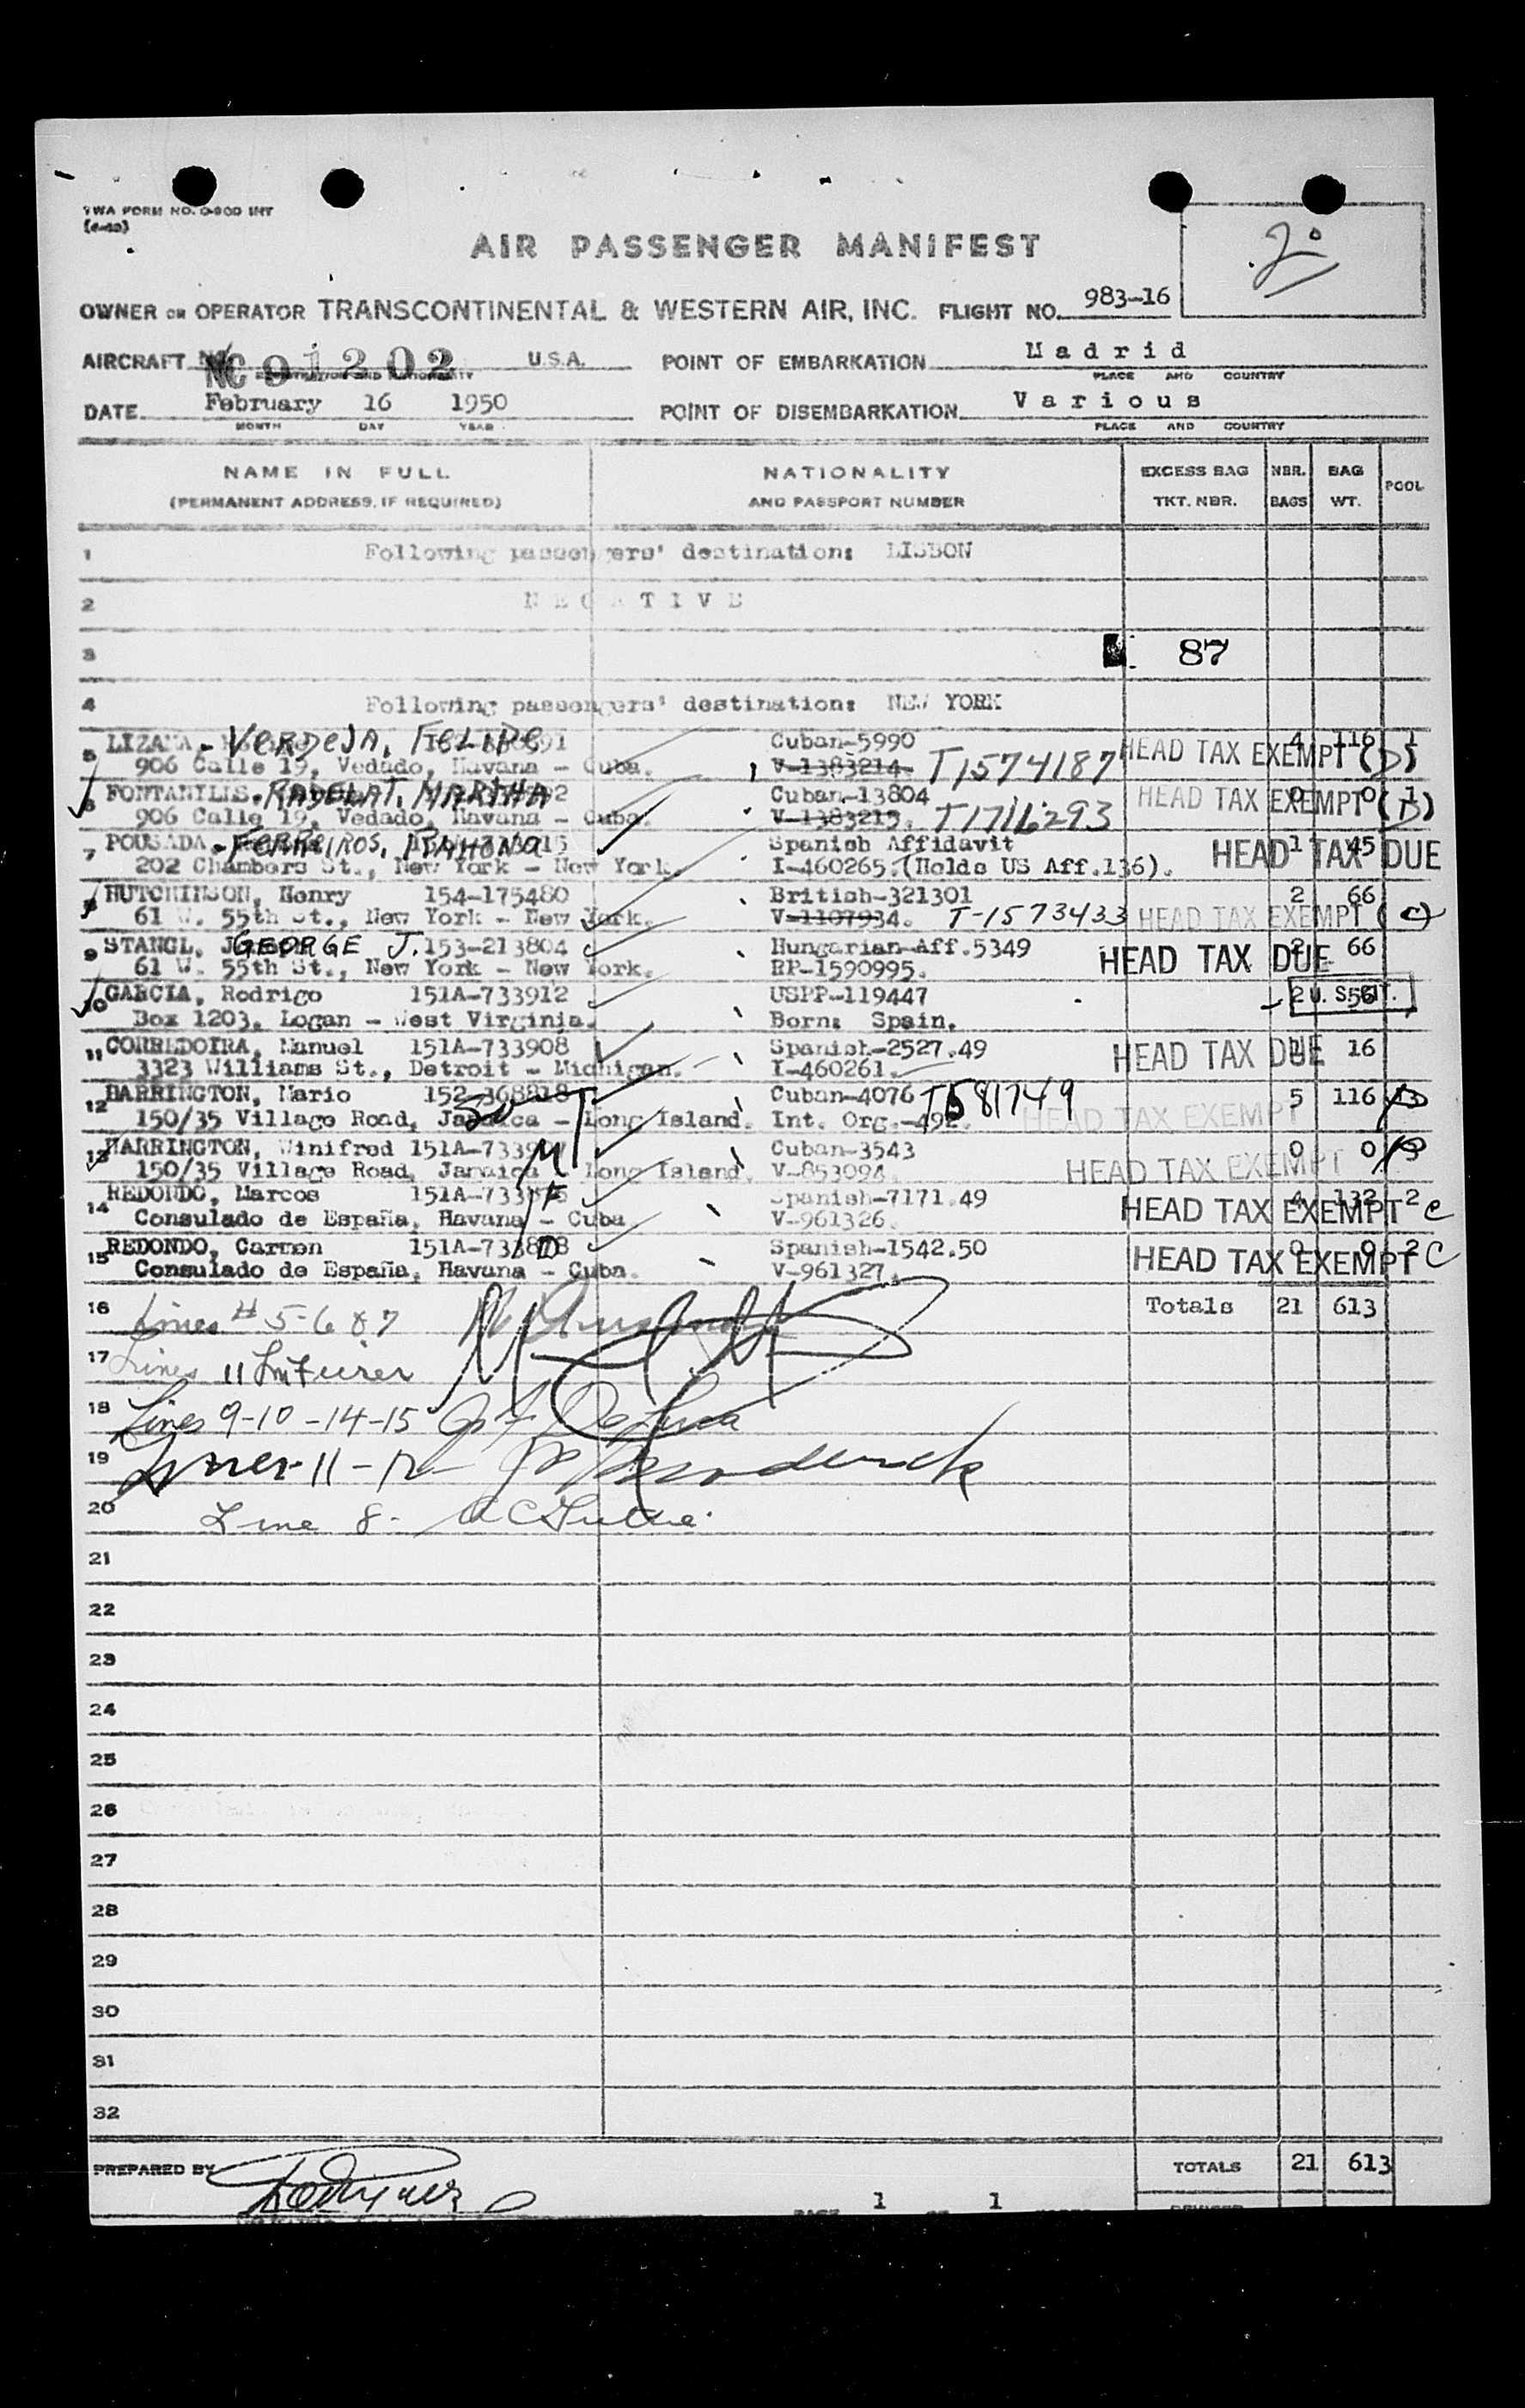 TWA FORM NO. O-800 INT
AIR PASSENGER MANIFEST
OWNER OR OPERATOR TRANSCONTINENTAL & WESTERN AIR, INC. FLIGHT NO. 983-16
AIRCRAFT NC 91202 U.S.A. POINT OF EMBARKATION Madrid
REGISTRATION AND NATIONALITY PLACE AND COUNTRY
DATE February 16 1950 POINT OF DISEMBARKATION Various
MONTH DAY YEAR PLACE AND COUNTRY
NAME IN FULL NATIONALITY EXCESS BAG NBR. BAG POOL
(PERMANENT ADDRESS, IF REQUIRED) AND PASSPORT NUMBER TKT. NBR. BAGS WT.
1 Following passengers' destination: LISBON
2 NEGATIVE
3 87
4 Following passengers' destination: NEW YORK
5 LIZAMA - VERDEJA, FELIPE Cuban-5990 HEAD TAX EXEMPT (D) 4 116 1
906 Calle 19, Vedado, Havana - Cuba. V-1383214. T1574187
6 FONTANILLS. RADELAT, MARTHA Cuban-13804 HEAD TAX EXEMPT (D) 0 0 1
906 Calle 19, Vedado, Havana - Cuba. V-1383215. T1716293
7 POUSADA - FERREIROS, RAMONA Spanish Affidavit HEAD TAX DUE 1 45
202 Chambers St., New York - New York. I-460265.(Holds US Aff.136).
8 HUTCHINSON, Henry 154-175480 British-321301 2 66
61 W. 55th St., New York - New York. V-1107934. T-1573433 HEAD TAX EXEMPT (C)
9 STANGL, GEORGE J. 153-213804 Hungarian-Aff.5349 HEAD TAX DUE 2 66
61 W. 55th St., New York - New York. RP-1590995.
10 GARCIA, Rodrigo 151A-733912 USPP-119447 2 56 U. S. CIT.
Box 1203, Logan - West Virginia. Born: Spain.
11 CORREDOIRA, Manuel 151A-733908 Spanish-2527.49 HEAD TAX DUE 16
3323 Williams St., Detroit - Michigan. I-460261.
12 HARRINGTON, Mario 152-368818 Cuban-4076 T1581749 5 116
150/35 Village Road, Jamaica - Long Island. Int. Org.-492. HEAD TAX EXEMPT
13 HARRINGTON, Winifred Cuban-3543 0 0
150/35 Village Road, Jamaica - Long Island. V-853094. HEAD TAX EXEMPT
14 REDONDO, Marcos Spanish-7171.49 HEAD TAX EXEMPT C 4 132 2
Consulado de España, Havana - Cuba V-961326.
15 REDONDO, Carmen Spanish-1542.50 HEAD TAX EXEMPT C 0 0 2
Consulado de España, Havana - Cuba. V-961327.
16 Lines # 5-6 & 7 Totals 21 613
17 Lines 11
18 Lines 9-10-14-15
19 Lines 11-12
20 Line 8.
21
22
23
24
25
26
27
28
29
30
31
32
PREPARED BY TOTALS 21 613
PAGE 1 OF 1